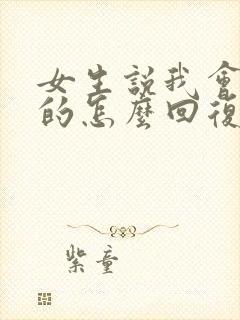 女生說我會
的怎麼回復
紫童